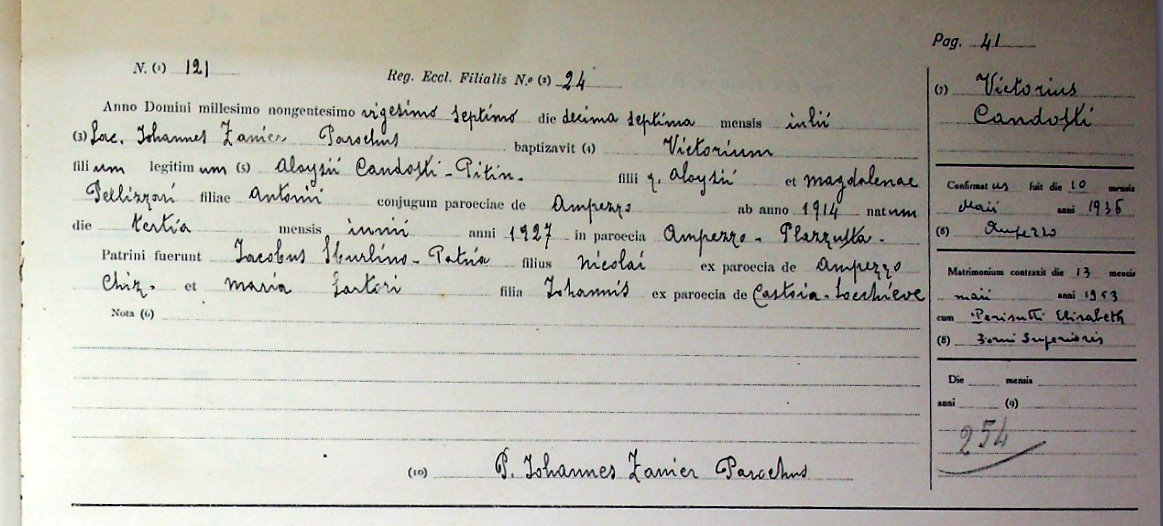 Pag. 41
N. (1) 121 Reg. Eccl. Filialis N.o (2) 24
Anno Domini millesimo nongentesimo vigesimo septimo die decima septima mensis iulii
(3) Sac. Iohannes Zanier Parochus baptizavit (4) Victorium
filium legitimum (5) Aloysii Candotti - Pitin. filii q. Aloysii et Magdalenae
Pellizzari filiae Antonii conjugum paroeciae de Ampezzo ab anno 1914 natum
die tertia mensis iunii anni 1927 in paroecia Ampezzo - Plazzutta.
Patrini fuerunt Iacobus Sburlino - Patria filius Nicolai ex paroecia de Ampezzo
et Maria Sartori filia Iohannis ex paroecia de Castoia - Socchieve
Nota (6)
(10) P. Iohannes Zanier Parochus
(7) Victorius
Candotti
Confirmatus fuit die 10 mensis
Maii anni 1936
(8) Ampezzo
Matrimonium contraxit die 13 mensis
maii anni 1953
cum Perisutti Elisabeth
(8) Forni Superioris
Die mensis
anni (9)
254